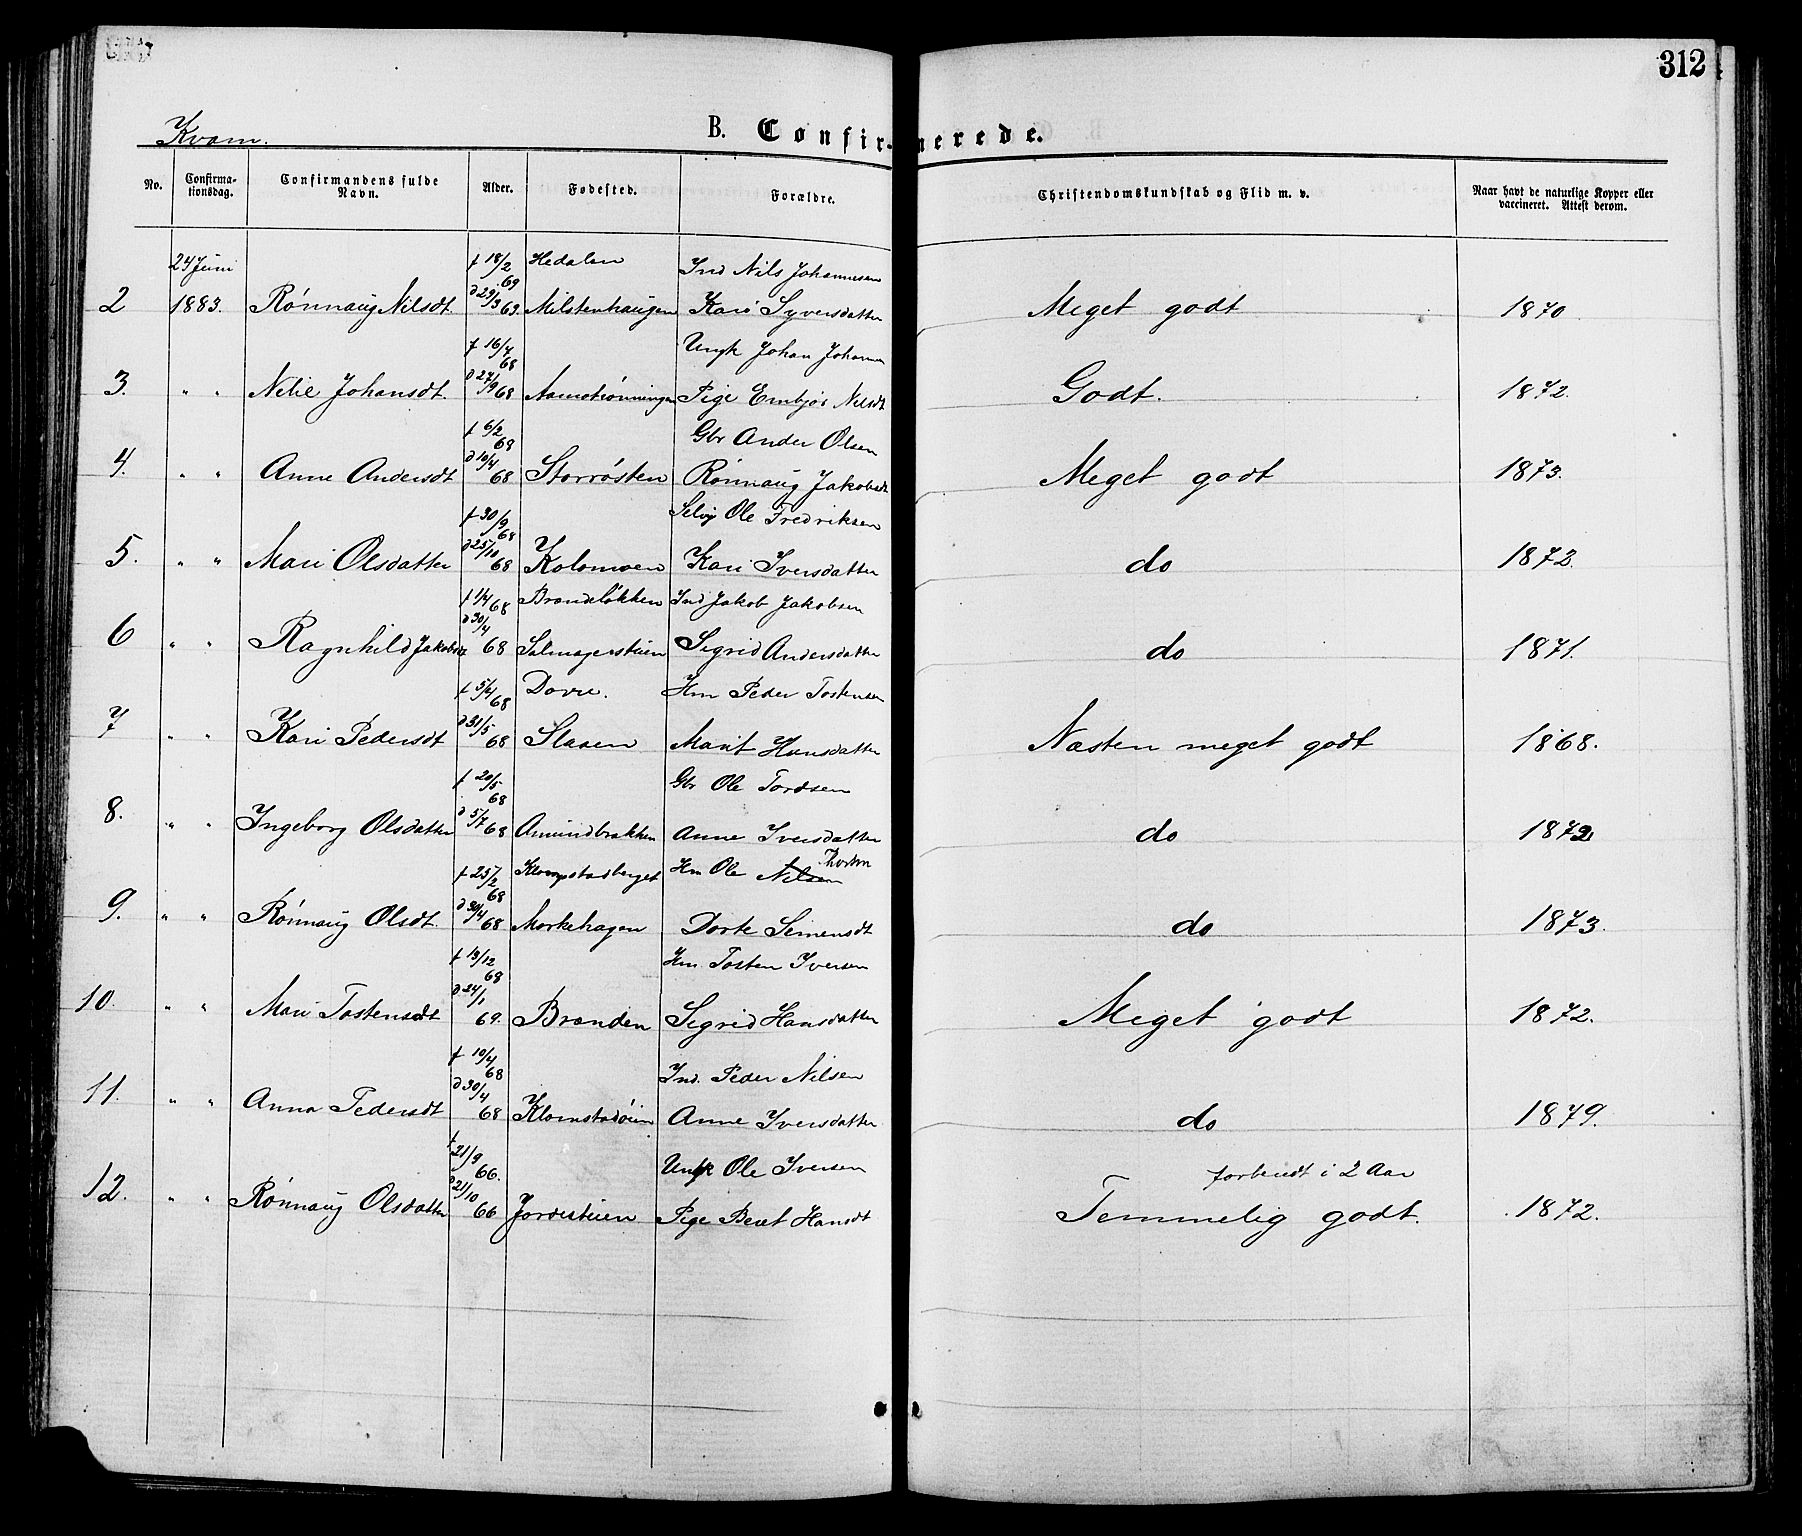 312
Kvam.
B. Confirmerede.
No.
Confirma-
tionsdag.
Confirmandens fulde
Navn.
Alder.
Fødested.
Forældre.
Christendomskundskab og Flid m. v.
Naar havt de naturlige Kopper eller
vaccineret. Attest derom.
24 Juni f 18/2 69 Hedalen Ind Nils Johannesen
2 1883. Rønnaug Nilsdt. d 29/3 69. Milstenhaugen Kari Syversdatter Meget godt 1870
f 16/7 68 Ungk Johan Johannes
3. " " Nelie Johansdt. d 27/9 68 Aamotrønningen Pige Embjør Nilsdt Godt. 1872.
f 6/2 68 Gbr Ander Olsen
4. " " Anne Andersdt d 10/4 68 Storrøsten Rønnaug Jakobsdt Meget godt 1873.
f 30/9 68 Selvej Ole Fredriksen
5. " " Mari Olsdatter d 25/10 68 Kolomoen Kari Iversdatter do 1872.
f 1/4 68 Brændeløkken Ind Jakob Jakobsen
6 " " Ragnhild Jakobsdt d 30/4 68 Salmagerstuen Sigrid Andersdatter do 1871.
f 5/4 68 Dovre. Hm Peder Tostensen
7 " " Kari Pedersdt d 31/5 68 Slaaen Marit Hansdatter Næsten meget godt 1868.
f 20/5 68 Gbr Ole Tordsen
8. " " Ingeborg Olsdatter d 5/7 68 Amundbakken Anne Iversdatter do 1872
f 25/2 68 Klompstadberget Hm Ole Nilsen Thorsten
9. " " Rønnaug Olsdt. d 30/4 68 Morkehagen Dorte Simensdt do 1873.
f 13/12 68 Hm. Tosten Iversen
10. " " Mari Tostensdt d 24/1 69. Brænden Sigrid Hansdatter Meget godt 1872.
f 10/4 68 Ind. Peder Nilsen
11. " " Anna Pedersdt d 30/4 68 Klomstadøien Anne Iversdatter do 1879.
f 21/9 66. Ungk Ole Iversen forberedt i 2 Aar
12. " " Rønnaug Olsdatter d 21/10 66 Jordestuen Pige Berit Hansdt Temmelig godt. 1872.